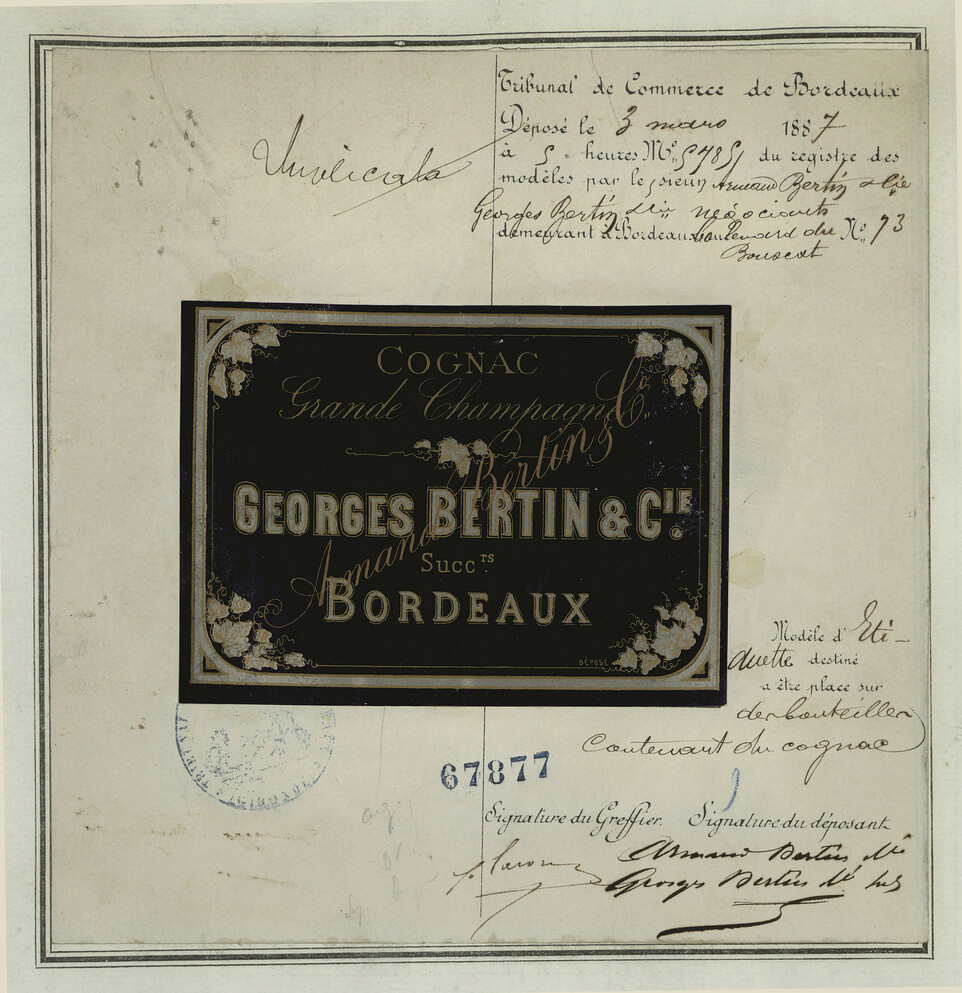 Tribunal de Commerce de Bordeaux
Déposé le 3 mars 1887
à 5 heures No. 5485 du registre des
modèles par le sieur Armand Bertin & Cie
Georges Bertin & Cie négociants
demeurant à Bordeaux boulevard du No. 73
Bouscat
COGNAC
Grande Champagne
Armand Bertin & Co.
GEORGES BERTIN & CIE.
Succrs.
BORDEAUX
DÉPOSÉ
Modèle d'Eti-
quette destiné
a être place sur
des bouteilles
Contenant du cognac
67877
9
Signature du Greffier. Signature du déposant
Armand Bertin &
Georges Bertin &